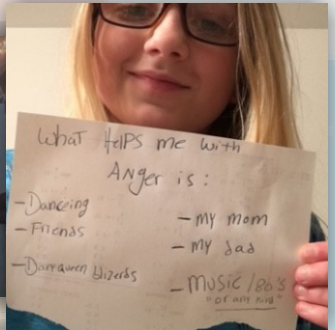 What HElPs me with
Anger is:
-Danceing
-Friends
-Dairaqueen blizerds
-my mom
-my dad
-Music /80's
"or any kind"